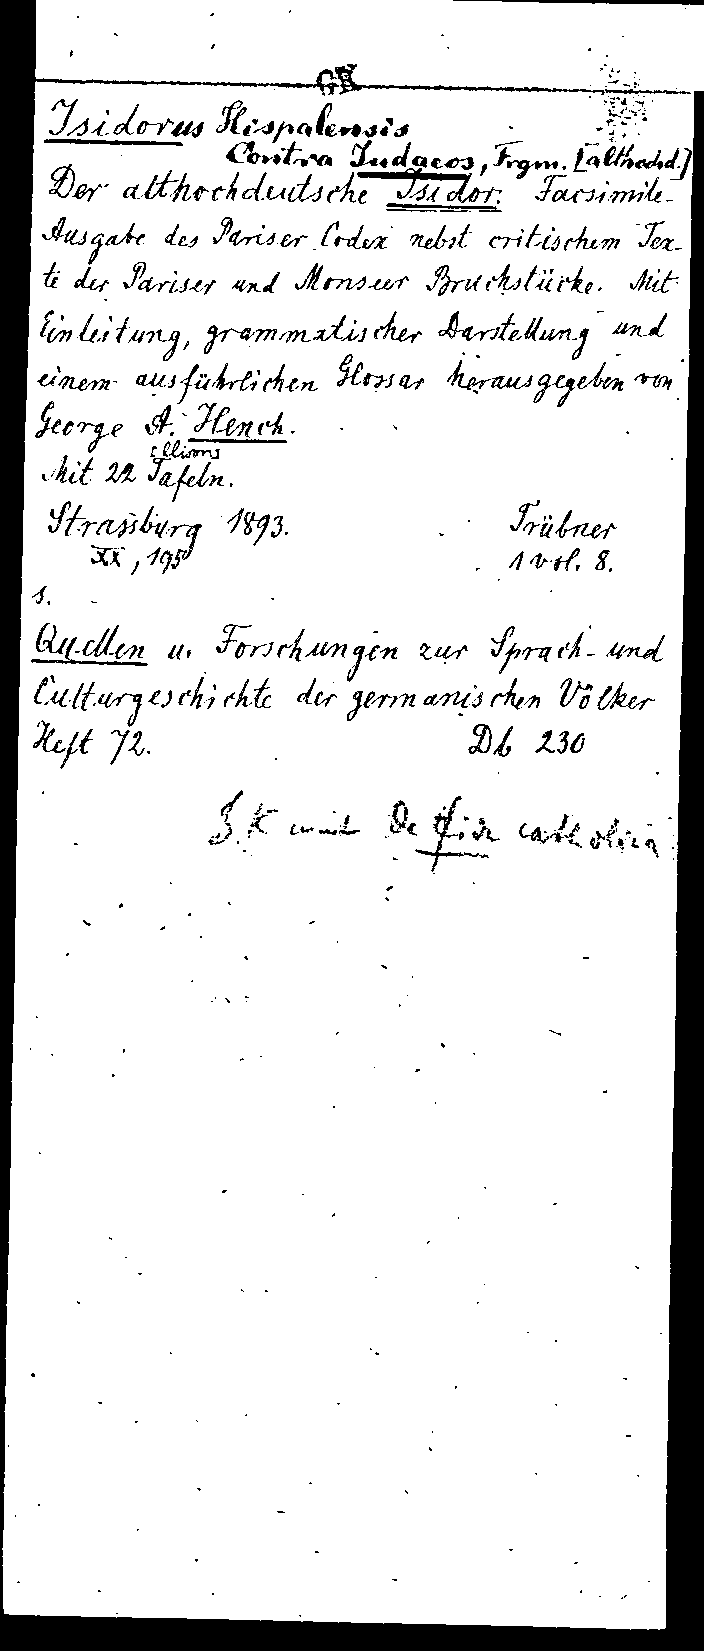 GK
Isidorus Hispalensis
Contra Iudaeos, Frgm. [althochd.]
Der althochdeutsche Isidor. Facsimile-
Ausgabe des Pariser Codex nebst critischem Tex-
te der Pariser und Monseer Bruchstücke. Mit
Einleitung, grammatischer Darstellung und
einem ausführlichen Glossar herausgegeben von
George A. Hench.
llison
Mit 22 Tafeln.
Strassburg 1893. Trübner
XX, 195 1 vol. 8.
s.
Quellen u. Forschungen zur Sprach- und
Culturgeschichte der germanischen Völker
Heft 72. Db 230
De fide catholica